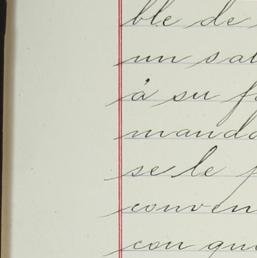 ble de
un sa
á su f
manda
se le
conven
con qu